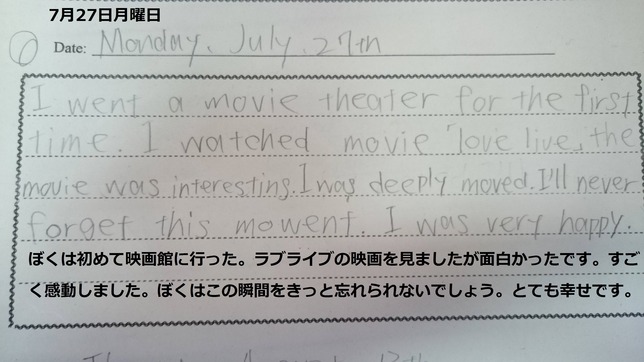 7月27日月曜日
Date: Monday, July, 27th
I went a movie theater for the first
time. I watched movie 「love live」 the
movie was interesting. I was deeply moved. I'll never
forget this mowent. I was very happy.
ぼくは初めて映画館に行った。ラブライブの映画を見ましたが面白かったです。すご
く感動しました。ぼくはこの瞬間をきっと忘れられないでしょう。とても幸せです。